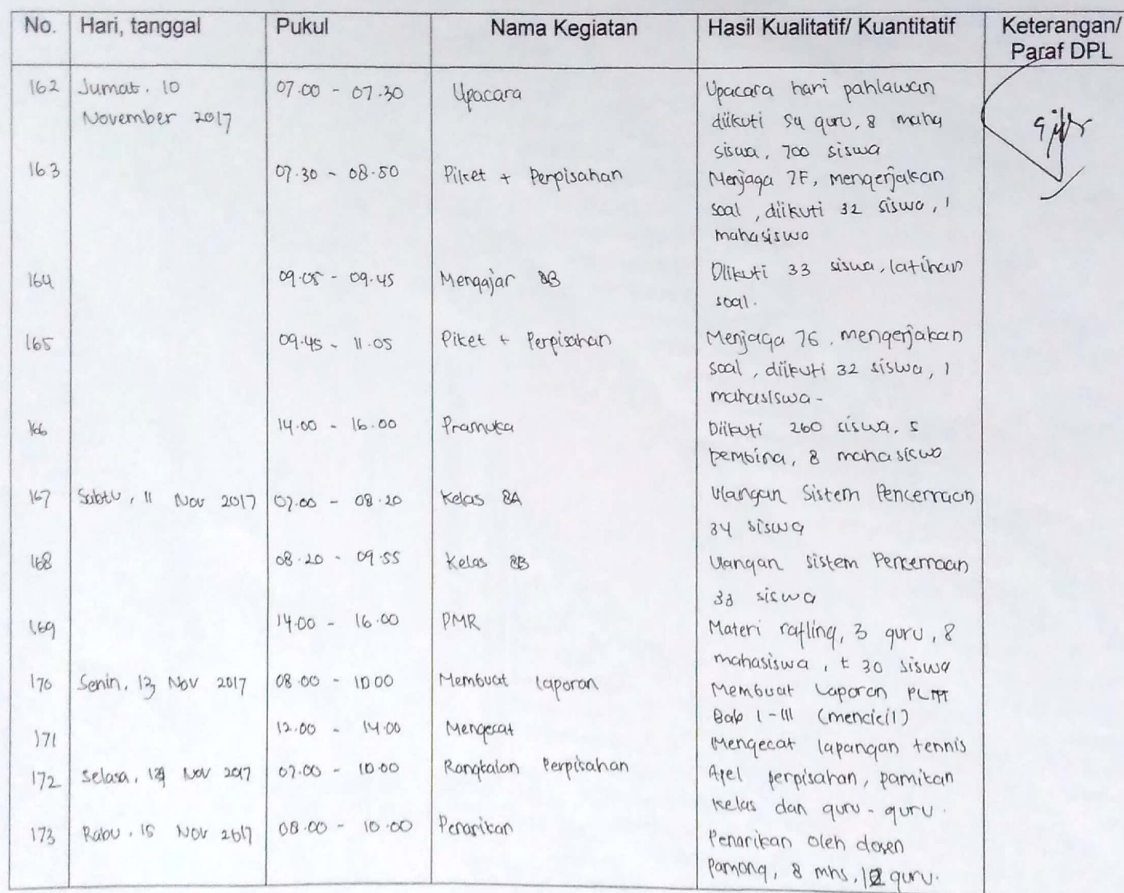 No. Hari, tanggal Pukul Nama Kegiatan Hasil Kualitatif/ Kuantitatif Keterangan/
Paraf DPL
162 Jumat, 10 07.00 - 07.30 Upacara Upacara hari pahlawan
November 2017 diikuti 54 guru, 8 maha
siswa, 700 siswa
163 07.30 - 08.50 Piket + Perpisahan Menjaga 7F, mengerjakan
soal, diikuti 32 siswa, 1
mahasiswa
164 09.05 - 09.45 Mengajar 8B Diikuti 33 siswa, latihan
soal.
165 09.45 - 11.05 Piket + Perpisahan Menjaga 7G, mengerjakan
soal, diikuti 32 siswa, 1
mahasiswa -
166 14.00 - 16.00 Pramuka Diikuti 260 siswa, 5
pembina, 8 mahasiswa
167 Sabtu, 11 Nov 2017 07.00 - 08.20 Kelas 8A Ulangan Sistem Pencernaan
34 siswa
168 08.20 - 09.55 Kelas 8B Ulangan Sistem Pencernaan
33 siswa
169 14.00 - 16.00 PMR Materi rafling, 3 guru, 8
mahasiswa, ± 30 siswa
170 Senin, 13 Nov 2017 08.00 - 10.00 Membuat laporan Membuat laporan
Bab I - III (mencicil)
171 12.00 - 14.00 Mengecat Mengecat lapangan tennis
172 Selasa, 14 Nov 2017 07.00 - 10.00 Rangkaian Perpisahan Apel perpisahan, pamitan
kelas dan guru - guru.
173 Rabu, 15 Nov 2017 08.00 - 10.00 Penarikan Penarikan oleh dosen
Pamong, 8 mhs, guru.